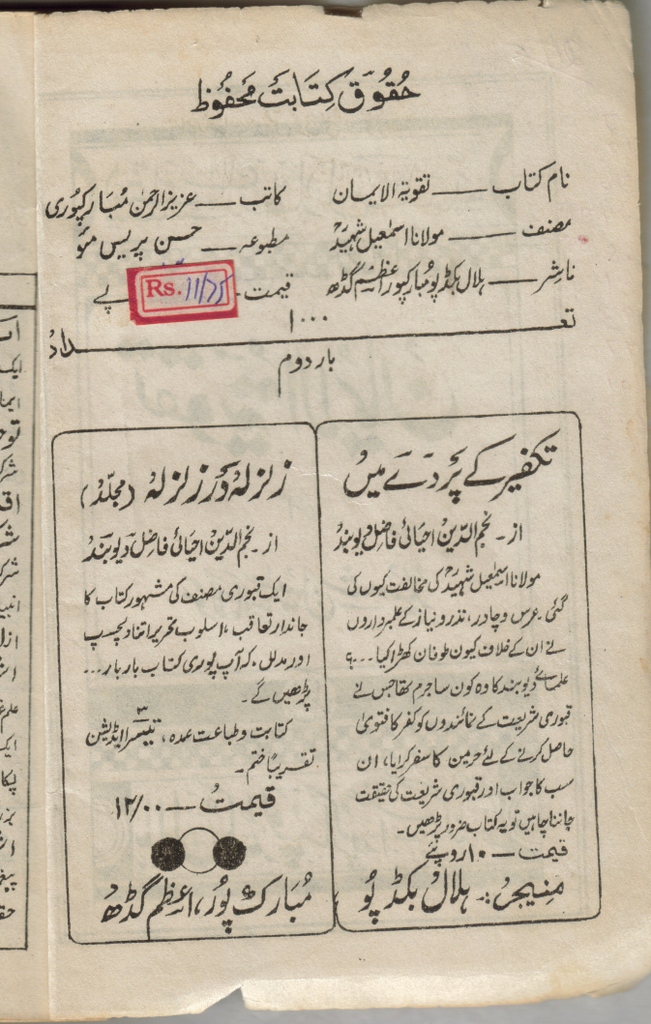 حقوق کتابت محفوظ
نام کتاب — تقویۃ الایمان کاتب — عزیز الرحمٰن مبارکپوری
مصنف — مولانا اسمٰعیل شہیدؒ مطبوعہ — حسن پریس مئو
ناشر — ہلال بکڈپو مبارکپور اعظم گڈھ قیمت Rs. 11/75 پے
تعداد ۱۰۰۰
بار دوم
تکفیر کے پردے میں
از۔ نجم الدین احیائی فاضل دیوبند
مولانا اسمٰعیل شہیدؒ کی مخالفت کیوں کی
گئی۔ عرس و چادر، نذر و نیاز کے علمبرداروں
نے ان کے خلاف کیوں طوفان کھڑا کیا...؟
علمائے دیوبند کا وہ کون سا جرم تھا جس نے
قبوری شریعت کے نمائندوں کو کفر کا فتویٰ
حاصل کرنے کے لئے حرمین کا سفر کرایا، ان
سب کا جواب اور قبوری شریعت کی حقیقت
جاننا چاہیں تو یہ کتاب ضرور پڑھیں۔
قیمت — ۱۰ روپئے
زلزلہ در زلزلہ (مجلد)
از۔ نجم الدین احیائی فاضل دیوبند
ایک قبوری مصنف کی مشہور کتاب کا
جاندار تعاقب، اسلوب تحریر اتنا دلچسپ
اور مدلل، کہ آپ پوری کتاب بار بار...
پڑھیں گے۔
کتابت و طباعت عمدہ، تیسرا ۳ ایڈیشن
تقریباً ختم۔
قیمت — ۱۲/۰۰
منیجر:۔ ہلال بکڈپو مبارک پور، اعظم گڈھ